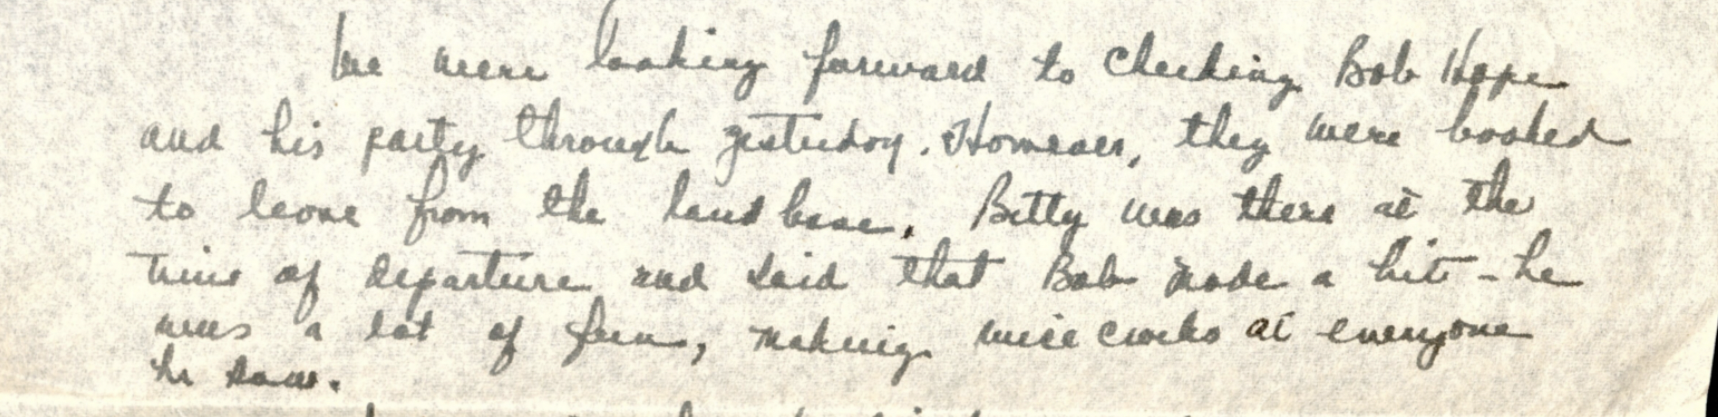 We were looking forward to checking Bob Hope
and his party through yesterday. However, they were booked
to leave from the land base. Betty was there at the
time of departure and said that Bob made a hit - he
was a lot of fun, making wise cracks at everyone
he saw.